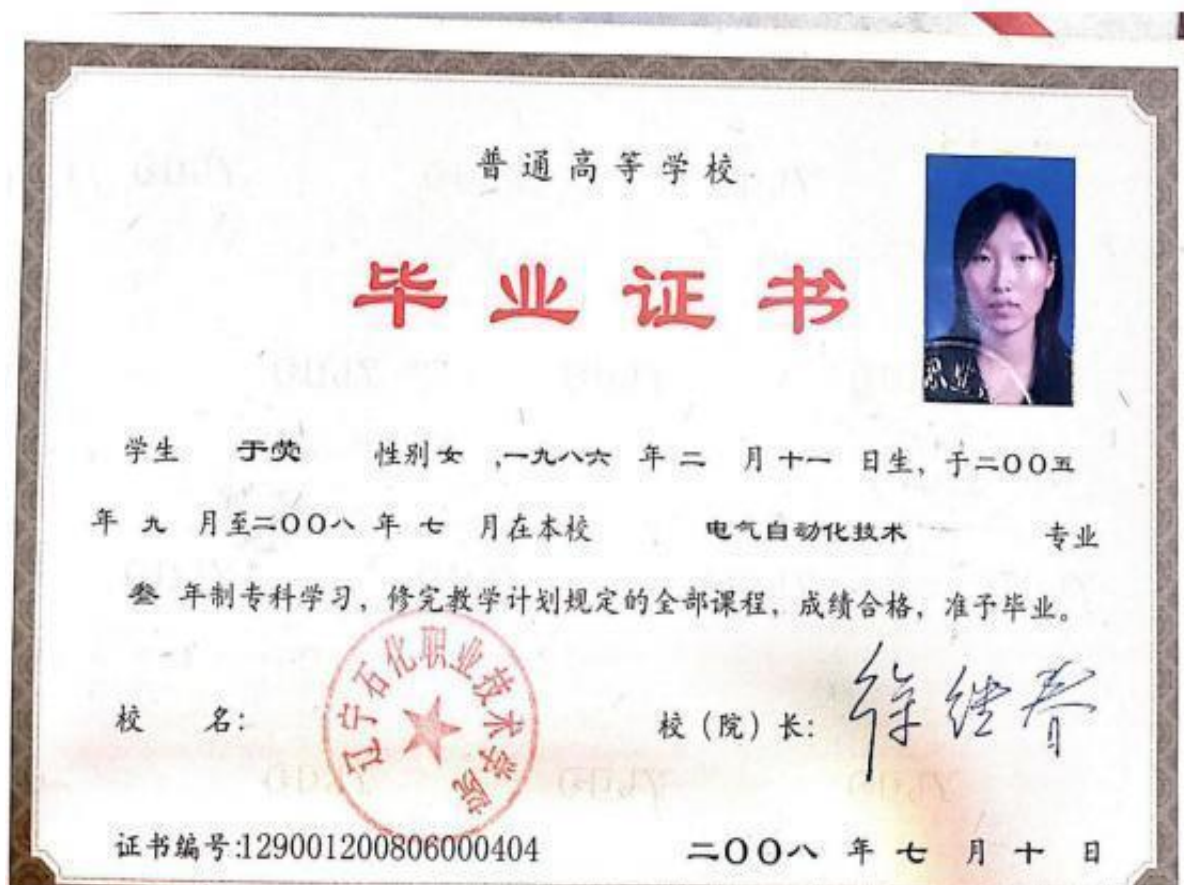 普通高等学校
毕业证书
职业
学生 于荧 性别 女 ,一九八六 年 二 月 十一 日生, 于二〇〇五
年 九 月至二〇〇八 年 七 月在本校 电气自动化技术 专业
叁 年制专科学习, 修完教学计划规定的全部课程, 成绩合格, 准予毕业。
辽宁石化职业技术学院
校 名: 校 (院) 长: 徐继春
证书编号:129001200806000404 二〇〇八 年 七 月 十 日